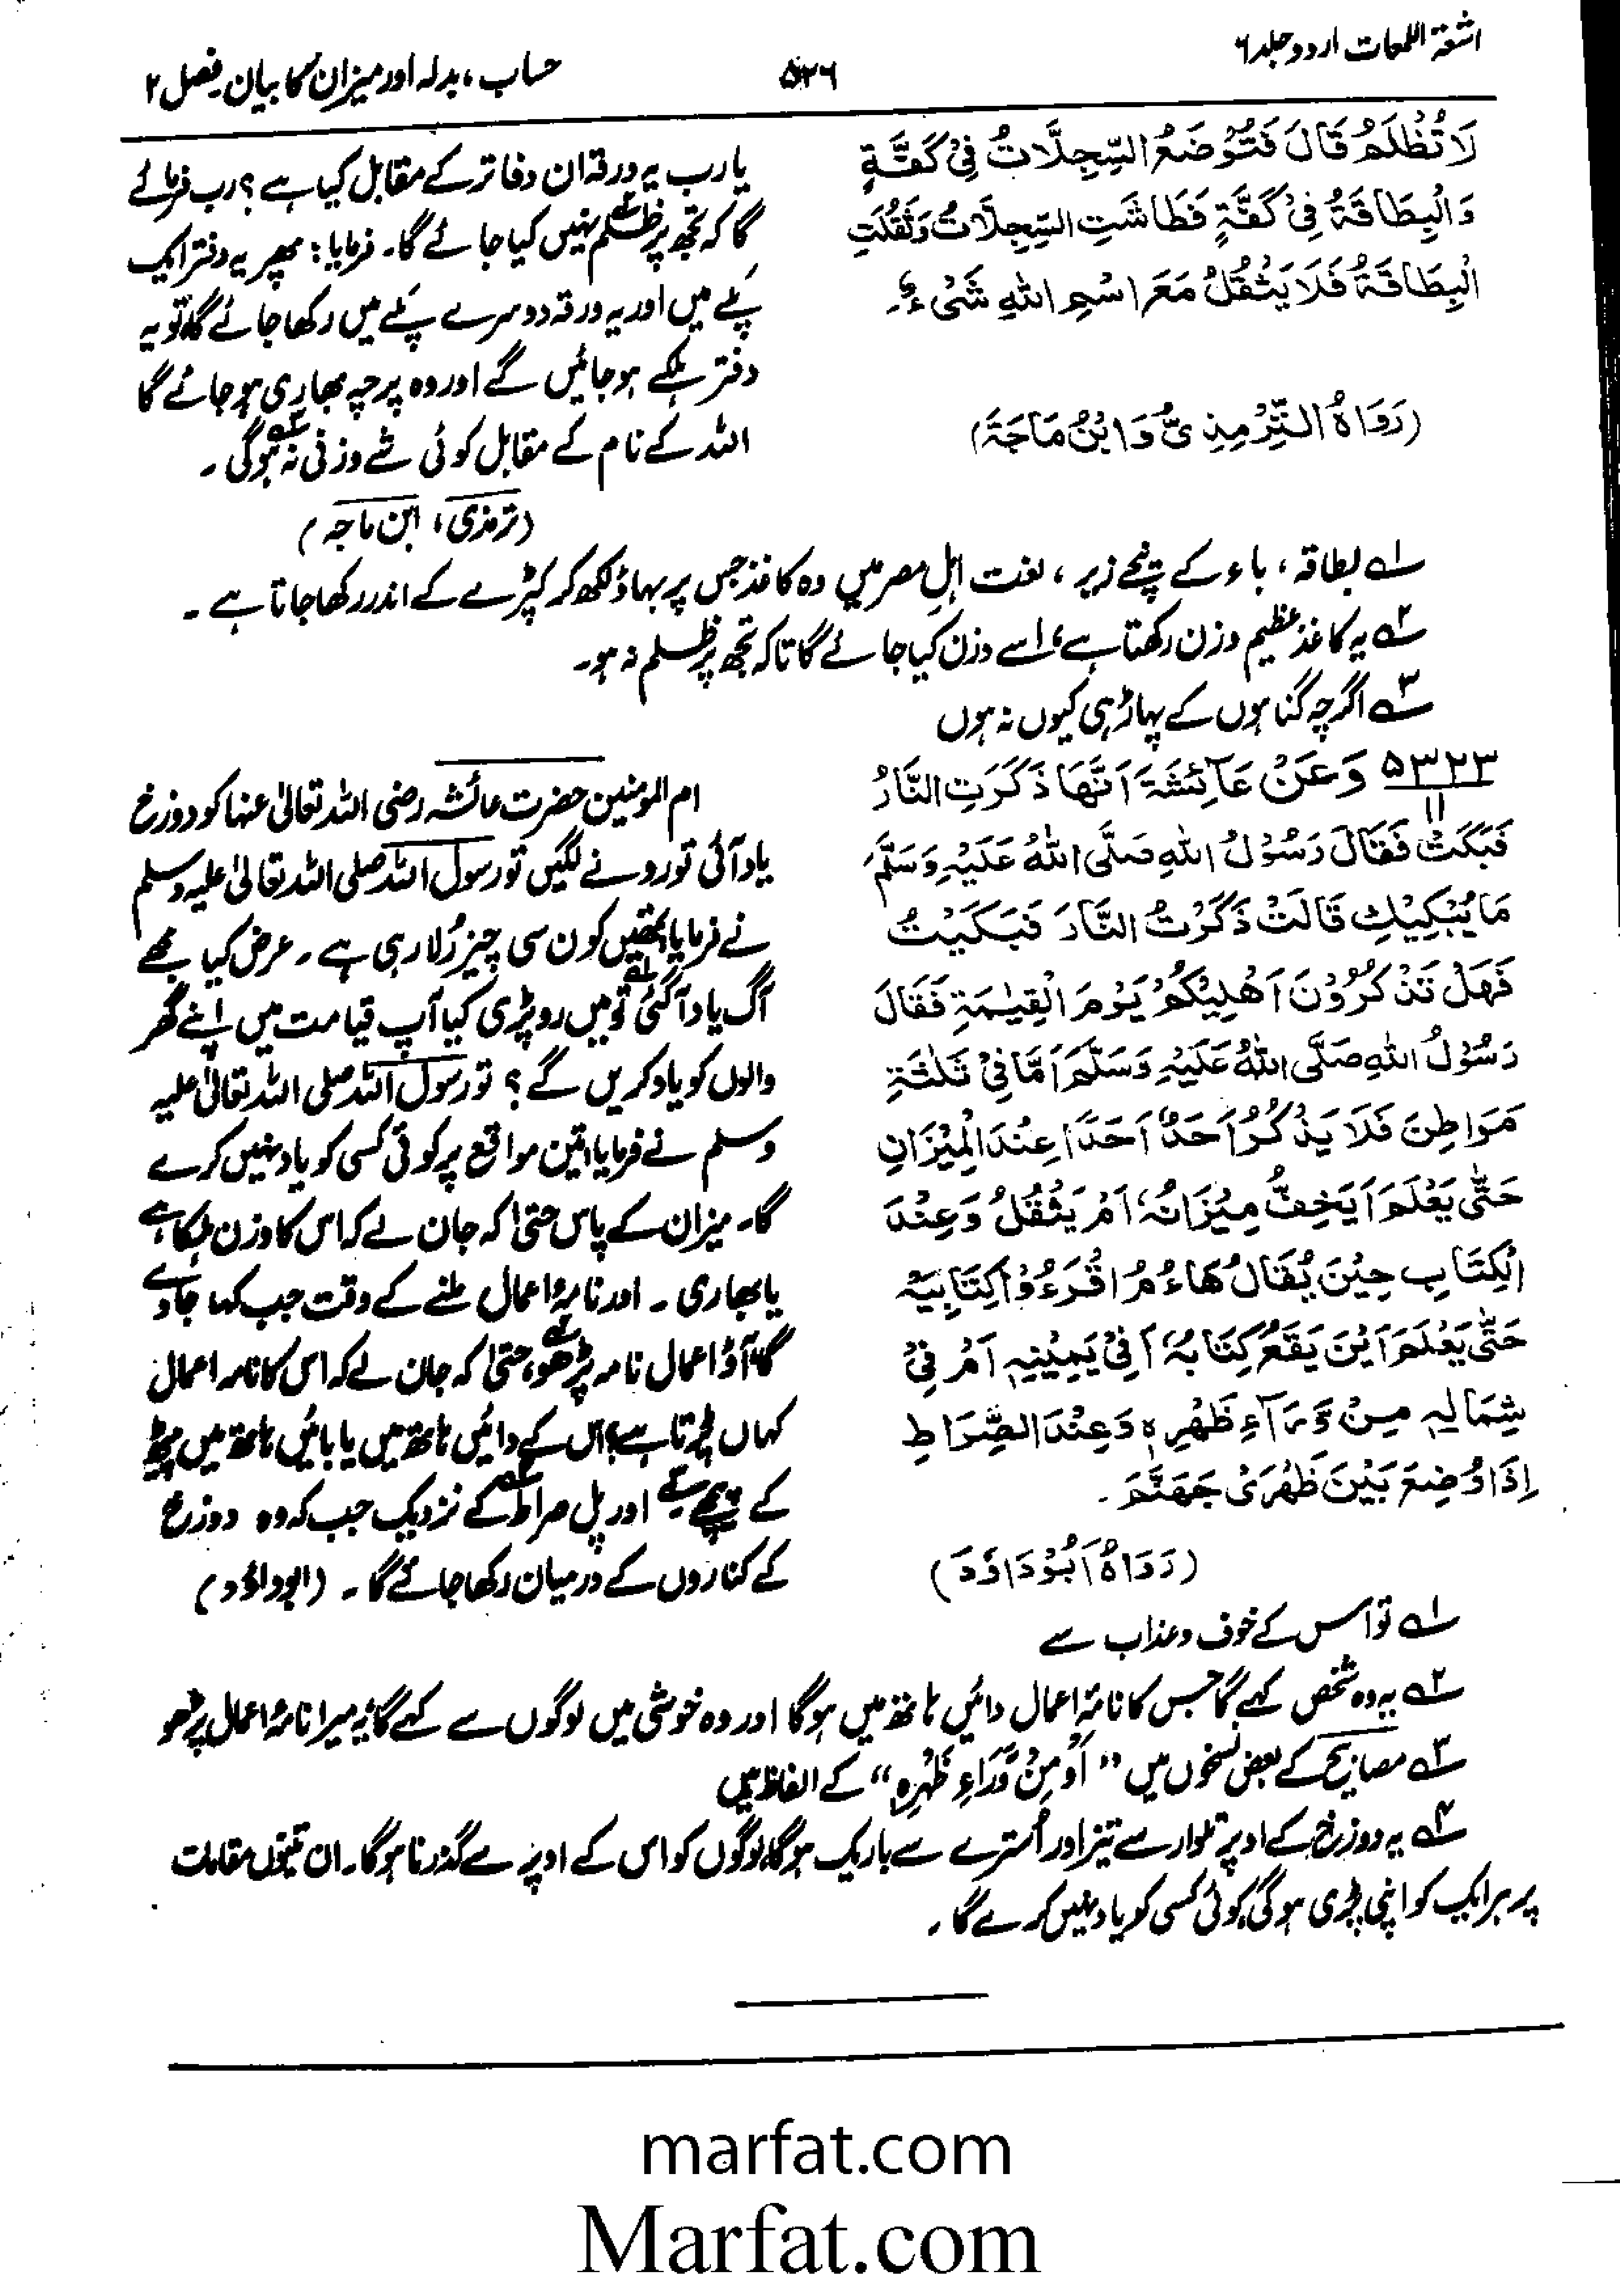 اشعۃ اللمعات اردو جلد ۶
۵۲۶
حساب، بدلہ اور میزان کا بیان۔ فصل ۲
لَا تُظْلَمُ قَالَ فَتُوْضَعُ السِّجِلَّاتُ فِیْ كَفَّةٍ
وَالْبِطَاقَةُ فِیْ كَفَّةٍ فَطَاشَتِ السِّجِلَّاتُ وَثَقُلَتِ
الْبِطَاقَةُ فَلَا یَثْقُلُ مَعَ اسْمِ اللهِ شَیْءٌ۔
(رَوَاهُ التِّرْمِذِیُّ وَابْنُ مَاجَةَ)
یا رب یہ ورقہ ان دفاتر کے مقابل کیا ہے؟ رب فرمائے
گا کہ تجھ پر ظلم نہیں کیا جائے گا۔ فرمایا: پھر یہ دفتر ایک
پلے میں اور یہ ورقہ دوسرے پلے میں رکھا جائے گا، تو یہ
دفتر ہلکے ہو جائیں گے اور وہ پرچہ بھاری ہو جائے گا
اللہ کے نام کے مقابل کوئی شے وزنی نہ ہوگی۔
(ترمذی، ابن ماجہ)
۱؎ بطاقہ، باء کے نیچے زیر، لغت اہلِ مصر میں وہ کاغذ جس پر بھاؤ لکھ کر کپڑے کے اندر رکھا جاتا ہے۔
۲؎ یہ کاغذ عظیم وزن رکھتا ہے، اسے وزن کیا جائے گا تاکہ تجھ پر ظلم نہ ہو۔
۳؎ اگرچہ گناہوں کے پہاڑ ہی کیوں نہ ہوں
۵۳۲۳ وَعَنْ عَآئِشَةَ اَنَّهَا ذَكَرَتِ النَّارَ
۱۱
فَبَكَتْ فَقَالَ رَسُوْلُ اللهِ صَلَّی اللهُ عَلَیْهِ وَسَلَّمَ
مَا یُبْكِیْكِ قَالَتْ ذَكَرْتُ النَّارَ فَبَكَیْتُ
فَهَلْ تَذْكُرُوْنَ اَهْلِیْكُمْ یَوْمَ الْقِیٰمَةِ فَقَالَ
رَسُوْلُ اللهِ صَلَّی اللهُ عَلَیْهِ وَسَلَّمَ اَمَّا فِیْ ثَلٰثَةِ
مَوَاطِنَ فَلَا یَذْكُرُ اَحَدٌ اَحَدًا عِنْدَ الْمِیْزَانِ
حَتّٰی یَعْلَمَ اَیَخِفُّ مِیْزَانُهٗ اَمْ یَثْقُلُ وَعِنْدَ
الْكِتَابِ حِیْنَ یُقَالُ هَاءُمُ اقْرَءُوْا كِتَابِیَهْ
حَتّٰی یَعْلَمَ اَیْنَ یَقَعُ كِتَابُهٗ اَفِیْ یَمِیْنِهٖ اَمْ فِیْ
شِمَالِهٖ مِنْ وَّرَآءِ ظَهْرِهٖ وَعِنْدَ الصِّرَاطِ
اِذَا وُضِعَ بَیْنَ ظَهْرَیْ جَهَنَّمَ۔
(رَوَاهُ اَبُوْ دَاوٗدَ)
ام المومنین حضرت عائشہ رضی اللہ تعالیٰ عنہا کو دوزخ
یاد آئی تو رونے لگیں تو رسول اللہ صلی اللہ تعالیٰ علیہ وسلم
نے فرمایا تمہیں کون سی چیز رُلا رہی ہے۔ عرض کیا مجھے
آگ یاد آگئی ۱؎ تو میں رو پڑی کیا آپ قیامت میں اپنے گھر
والوں کو یاد کریں گے؟ تو رسول اللہ صلی اللہ تعالیٰ علیہ
وسلم نے فرمایا تین مواقع پر کوئی کسی کو یاد نہیں کرے
گا۔ میزان کے پاس حتیٰ کہ جان لے کہ اس کا وزن ہلکا ہے
یا بھاری۔ اور نامۂ اعمال ملنے کے وقت جب کہا جاوے
گا، آؤ اعمال نامہ پڑھو ۲؎، حتیٰ کہ جان لے کہ اس کا نامہ اعمال
کہاں پڑتا ہے؟ اس کے دائیں ہاتھ میں یا بائیں ہاتھ میں پیٹھ
کے پیچھے سے ۳؎ اور پل صراط ۴؎ کے نزدیک جب کہ وہ دوزخ
کے کناروں کے درمیان رکھا جائے گا۔ (ابوداؤد)
۱؎ تو اس کے خوف و عذاب سے
۲؎ یہ وہ شخص کہے گا جس کا نامۂ اعمال دائیں ہاتھ میں ہوگا اور وہ خوشی میں لوگوں سے کہے گا یہ میرا نامۂ اعمال پڑھو
۳؎ مصابیح کے بعض نسخوں میں "اَوْ مِنْ وَّرَاءِ ظَهْرِهٖ" کے الفاظ ہیں
۴؎ یہ دوزخ کے اوپر تلوار سے تیز اور اُسترے سے باریک ہوگا، لوگوں کو اس کے اوپر سے گذرنا ہوگا۔ ان تینوں مقامات
پر ہر ایک کو اپنی پڑی ہوگی، کوئی کسی کو یاد نہیں کرے گا۔
marfat.com
Marfat.com